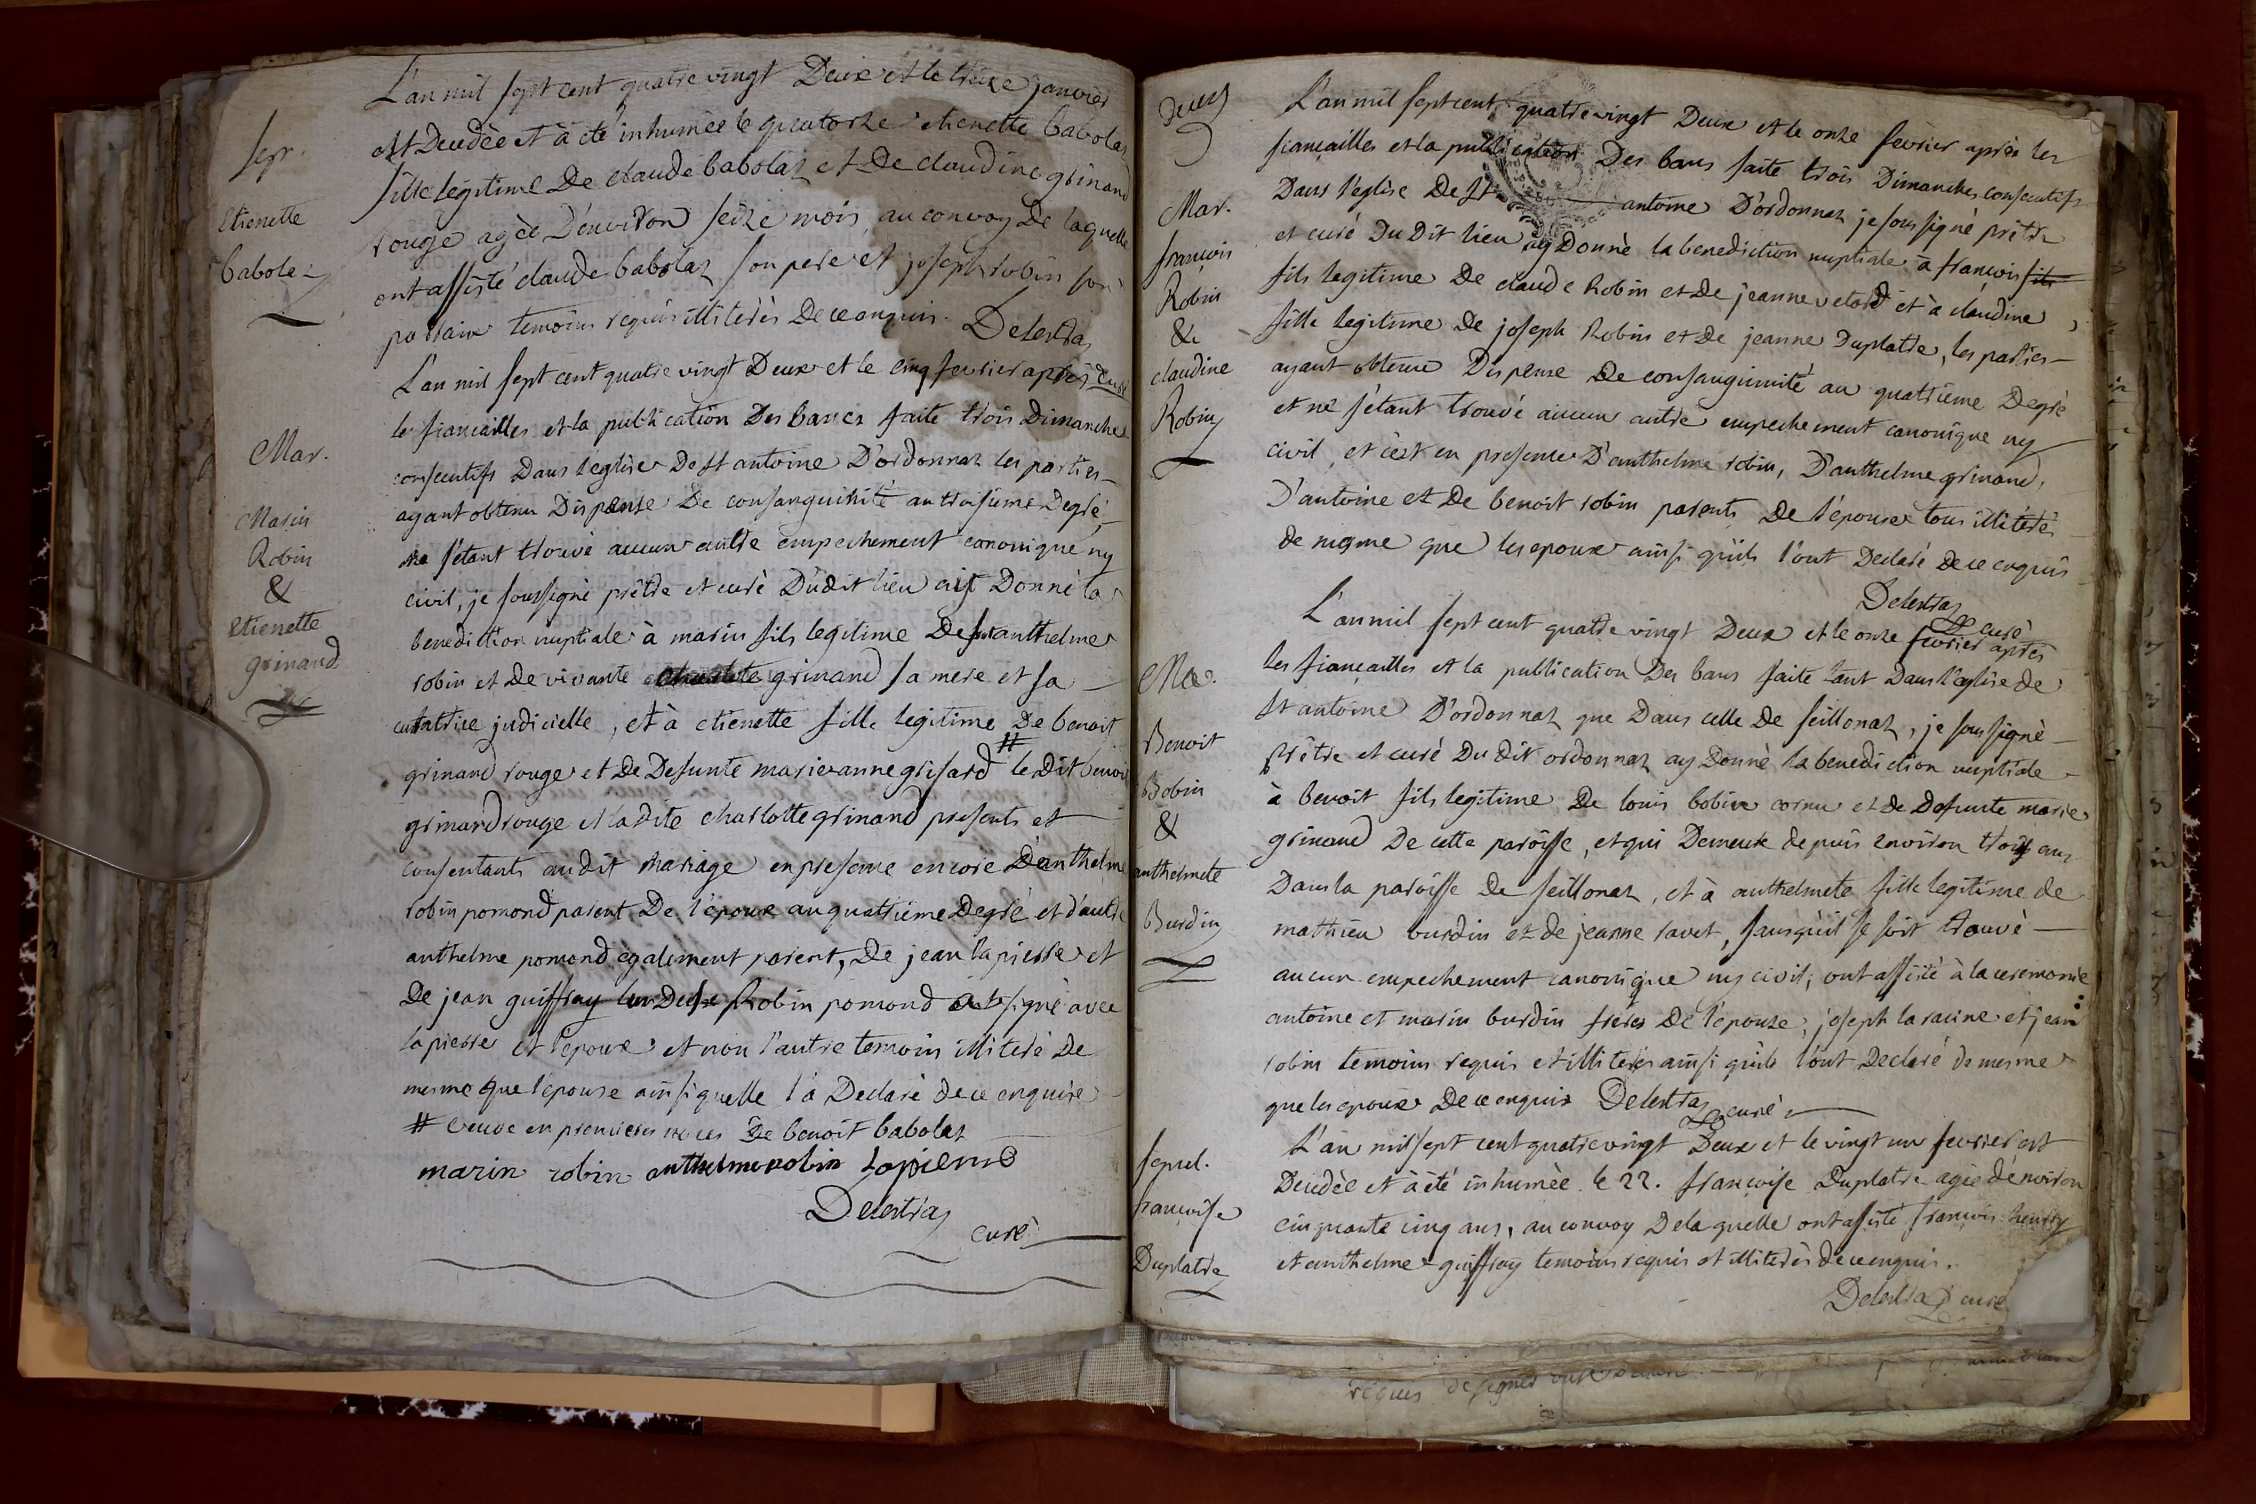 Sep.
Etienette
babolaz
L'an mil sept cent quatre vingt Deux et le treize janvier
est Decedèe et à eté inhumèe le quatorze etienette babolaz
fille legitime De claude babolaz et De claudine grinand
rouge agèe D'environ seize mois, au convoy De laquelle
ont assisté claude babolaz son pere et joseph robin son
parrain temoins requis illiterès De ce enquis. Delestraz
curé
Mar.
Marin
Robin
&
Etienette
grinand
L'an mil sept cent quatre vingt Deux et le cinq fevrier après
les fiancailles et la publication Des bancs faite trois Dimanches
consecutifs Dans l'eglise De St antoine D'ordonnaz les parties
ayant obtenu Dispense De consanguinité au troisieme Degré,
ne s'etant trouvé aucun autre empechement canonique ny
civil, je soussigné prêtre et curé Dudit lieu ay Donné la
benediction nuptiale à marin fils legitime De fut anthelme
robin et De vivante grinand sa mere et sa
curatrice judicielle, et à etienette fille legitime De benoit
grinand rouge et De Defunte marieanne grisard # le Dit benoit
grinand rouge et la Dite charlotte grinand presents et
consentants audit Mariage en presence encore D'anthelme
robin pomond parent De l'epoux au quatrieme Degré et d'autre
anthelme pomond egalement parent, De jean lapierre et
De jean guiffray Robin pomond signé avec
lapierre et l'epoux et non l'autre temoin illiteré De
mesme que l'epouse ainsi quelle l'à Declaré de ce enquise
# veuve en premieres noces De benoit babolaz
marin robin anthelme robin Lapierre
Delestraz
curè
Deces
Mar.
françois
Robin
&
claudine
Robin
L'an mil sept cent quatre vingt Deux et le onze fevrier après les
fiançailles et la publication Des bans faite trois Dimanches consecutifs
Dans l'eglise De St antoine D'ordonnaz je soussigné prêtre
et curé Du Dit lieu ay Donnè la benediction nuptiale à françois fils
fils legitime De claude Robin et De jeanne velard et à claudine
fille legitime De joseph Robin et De jeanne Duplatre, les parties
ayant obtenu Dispense De consanguinité au quatrieme Degré
et ne s'etant trouvé aucun autre empechement canonique ny
civil, et c'est en presence D'anthelme robin, D'anthelme grinand,
D'antoine et De benoit robin parents De l'epouse tous illiterés
de mesme que les epoux ainsi qu'ils l'ont Declaré de ce enquis
Delestraz
curè
Mar.
Benoit
Bobin
&
anthelmete
Burdin
L'an mil sept cent quatre vingt Deux et le onze fevrier après
les fiançailles et la publication Des bans faite tant Dans l'eglise de
St antoine D'ordonnaz que Dans celle De seillonaz, je soussignè
prêtre et curé Du dit ordonnaz ay Donnè la benediction nuptiale
à benoit fils legitime De louis bobin cornu et de Defunte marie
grinand De cette paroisse, et qui Demeure depuis environ trois ans
Dans la paroisse De seillonaz, et à anthelmete fille legitime de
mathieu burdin et de jeanne ravet, sans qu'il se soit trouvè
aucun empechement canonique ny civil; ont assisté à la ceremonie
antoine et marin burdin freres De l'epouse, joseph laracine et jean
robin temoins requis et illiterés ainsi qu'ils l'ont Declaré de mesme
que les epoux De ce enquis Delestraz curè
sepul.
françoise
Duplatre
L'an mil sept cent quatre vingt Deux et le vingt un fevrier est
Decedèe et à été inhumèe le 22. françoise Duplatre agèe d'environ
cinquante cinq ans, au convoy De laquelle ont assisté françois
et anthelme guiffray temoins requis et illiterés de ce enquis.
Delestraz curé
requis de signer